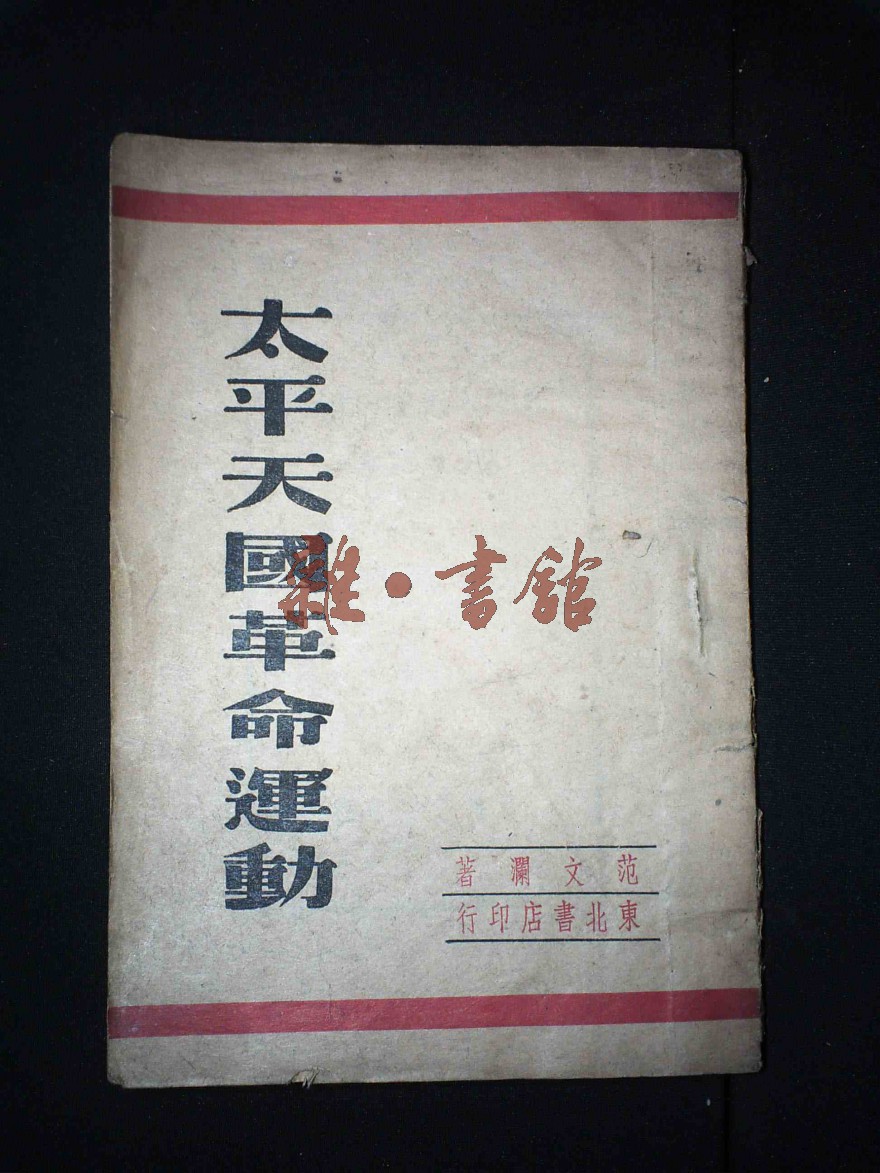 太平天國革命運動
雜·書館
范文瀾著
東北書店印行